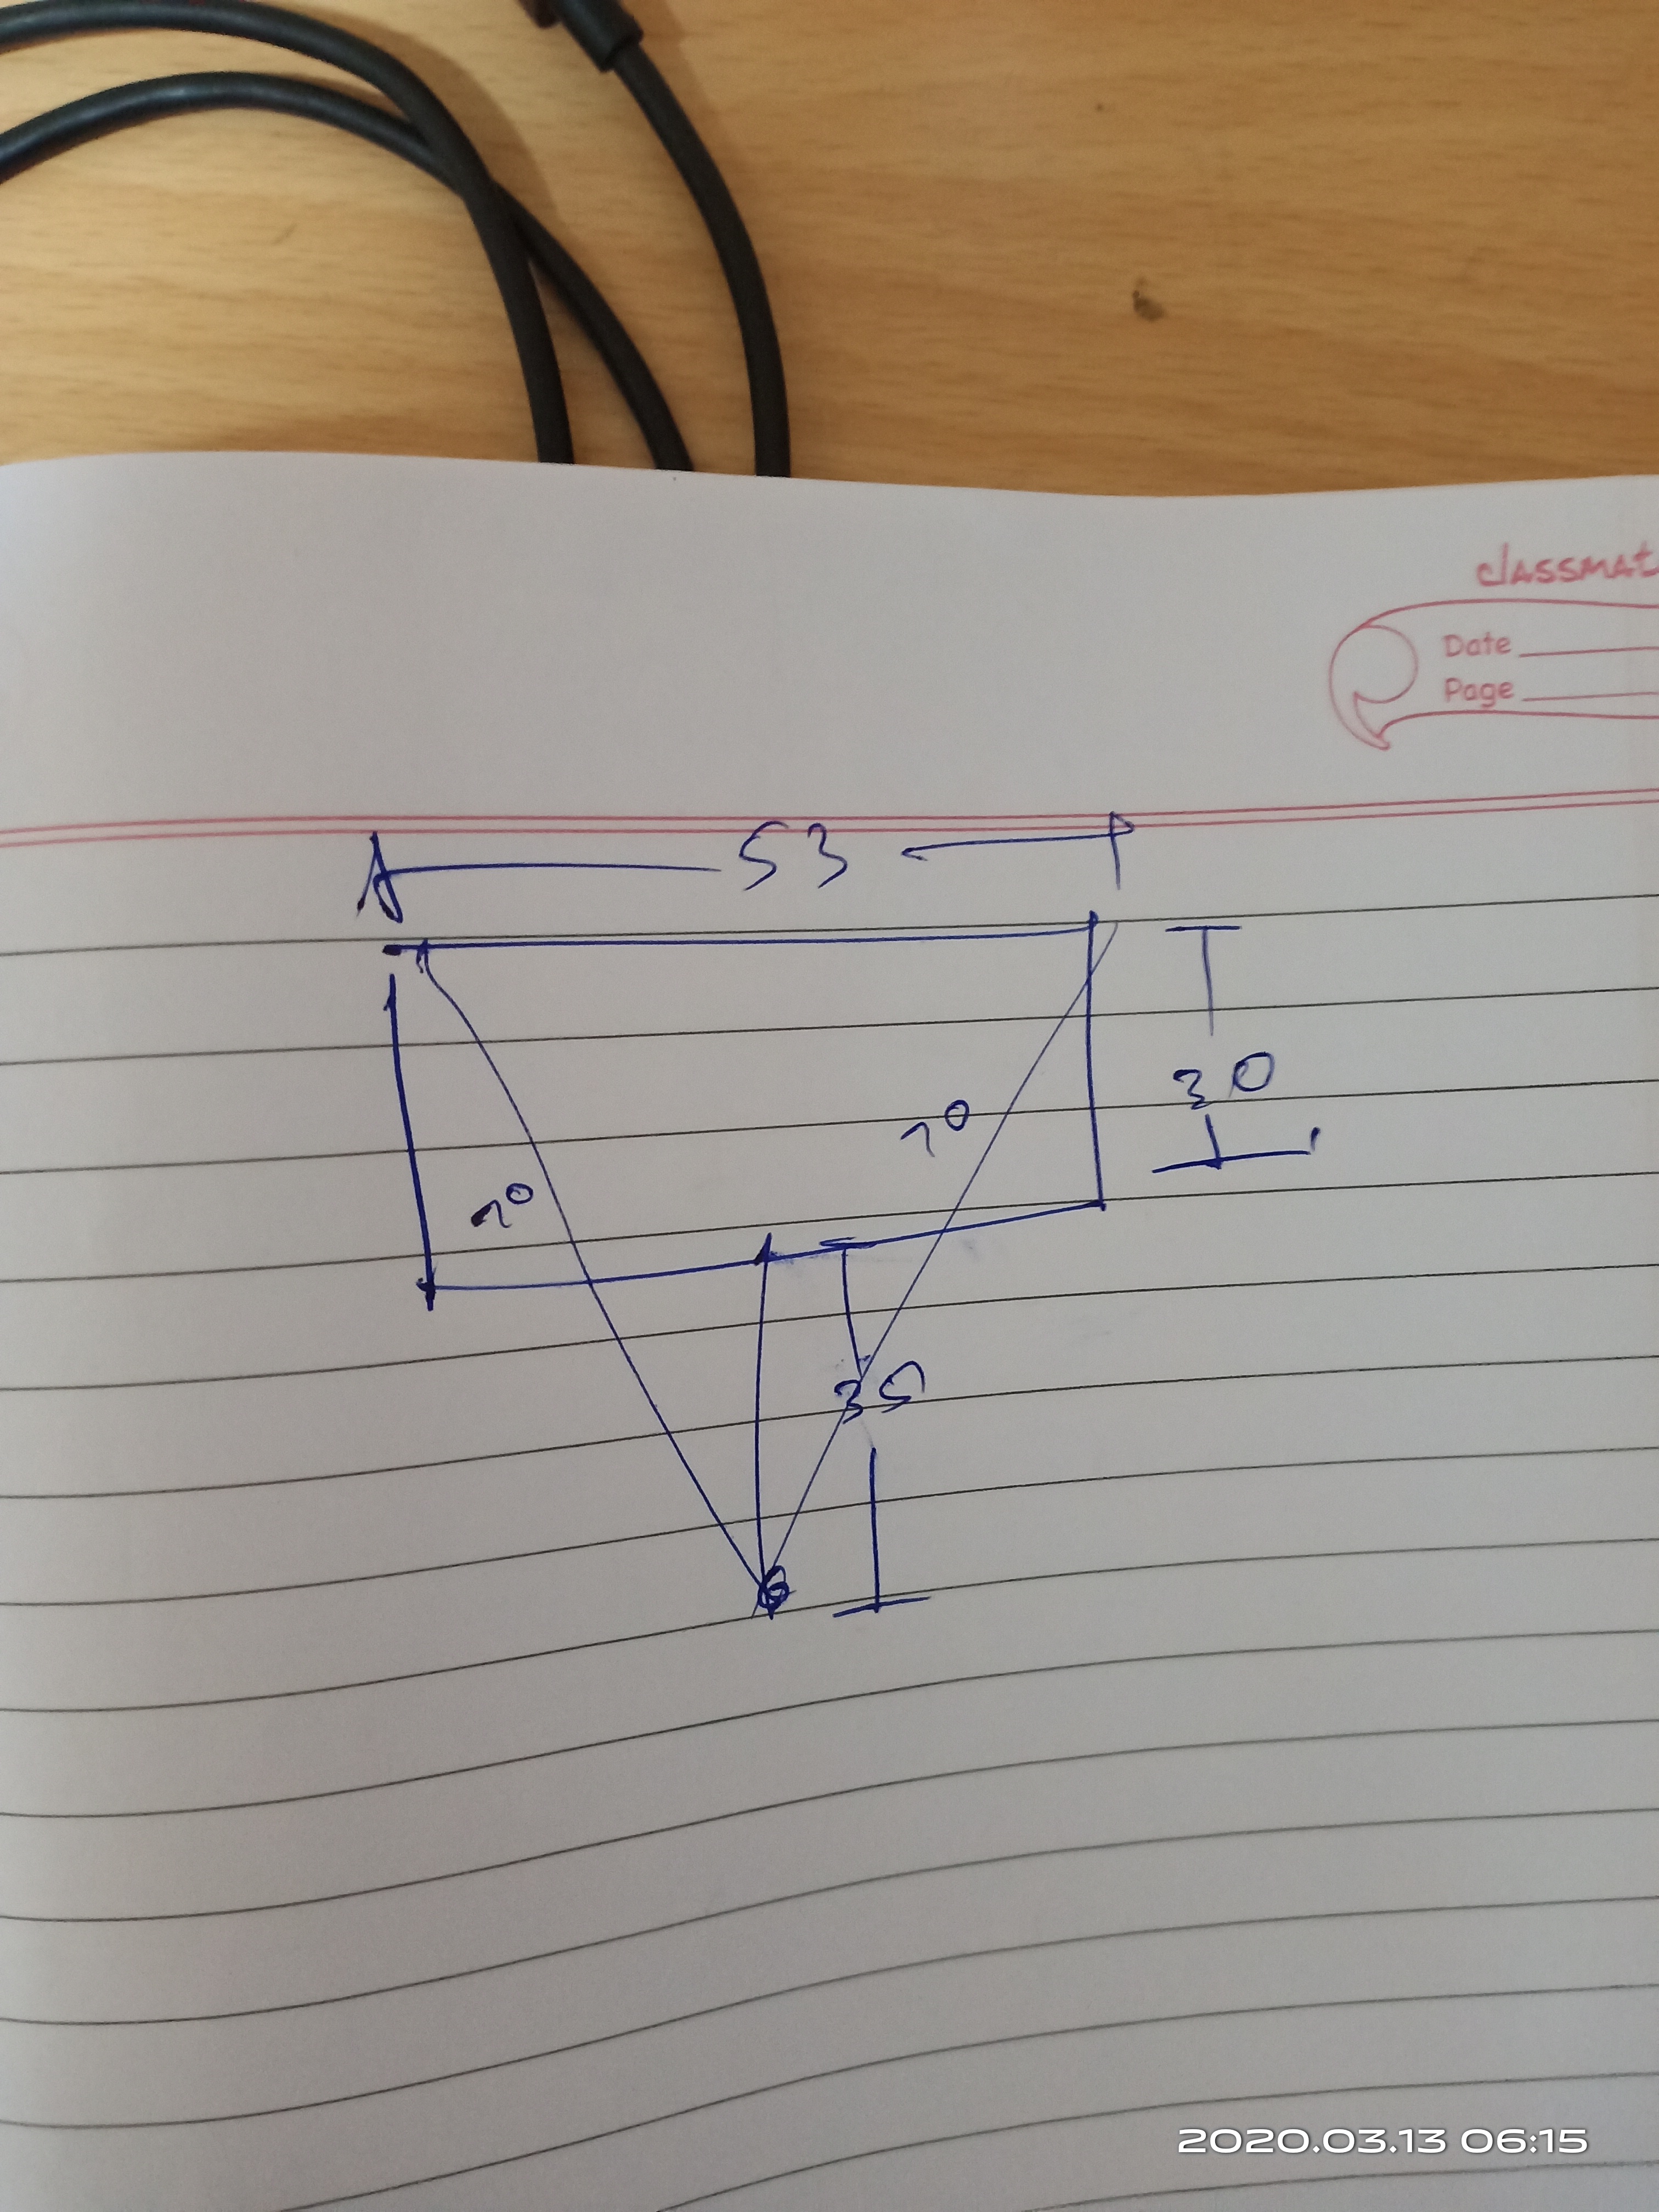 classmat
Date
Page
53
30
70
70
35
2020.03.13 06:15